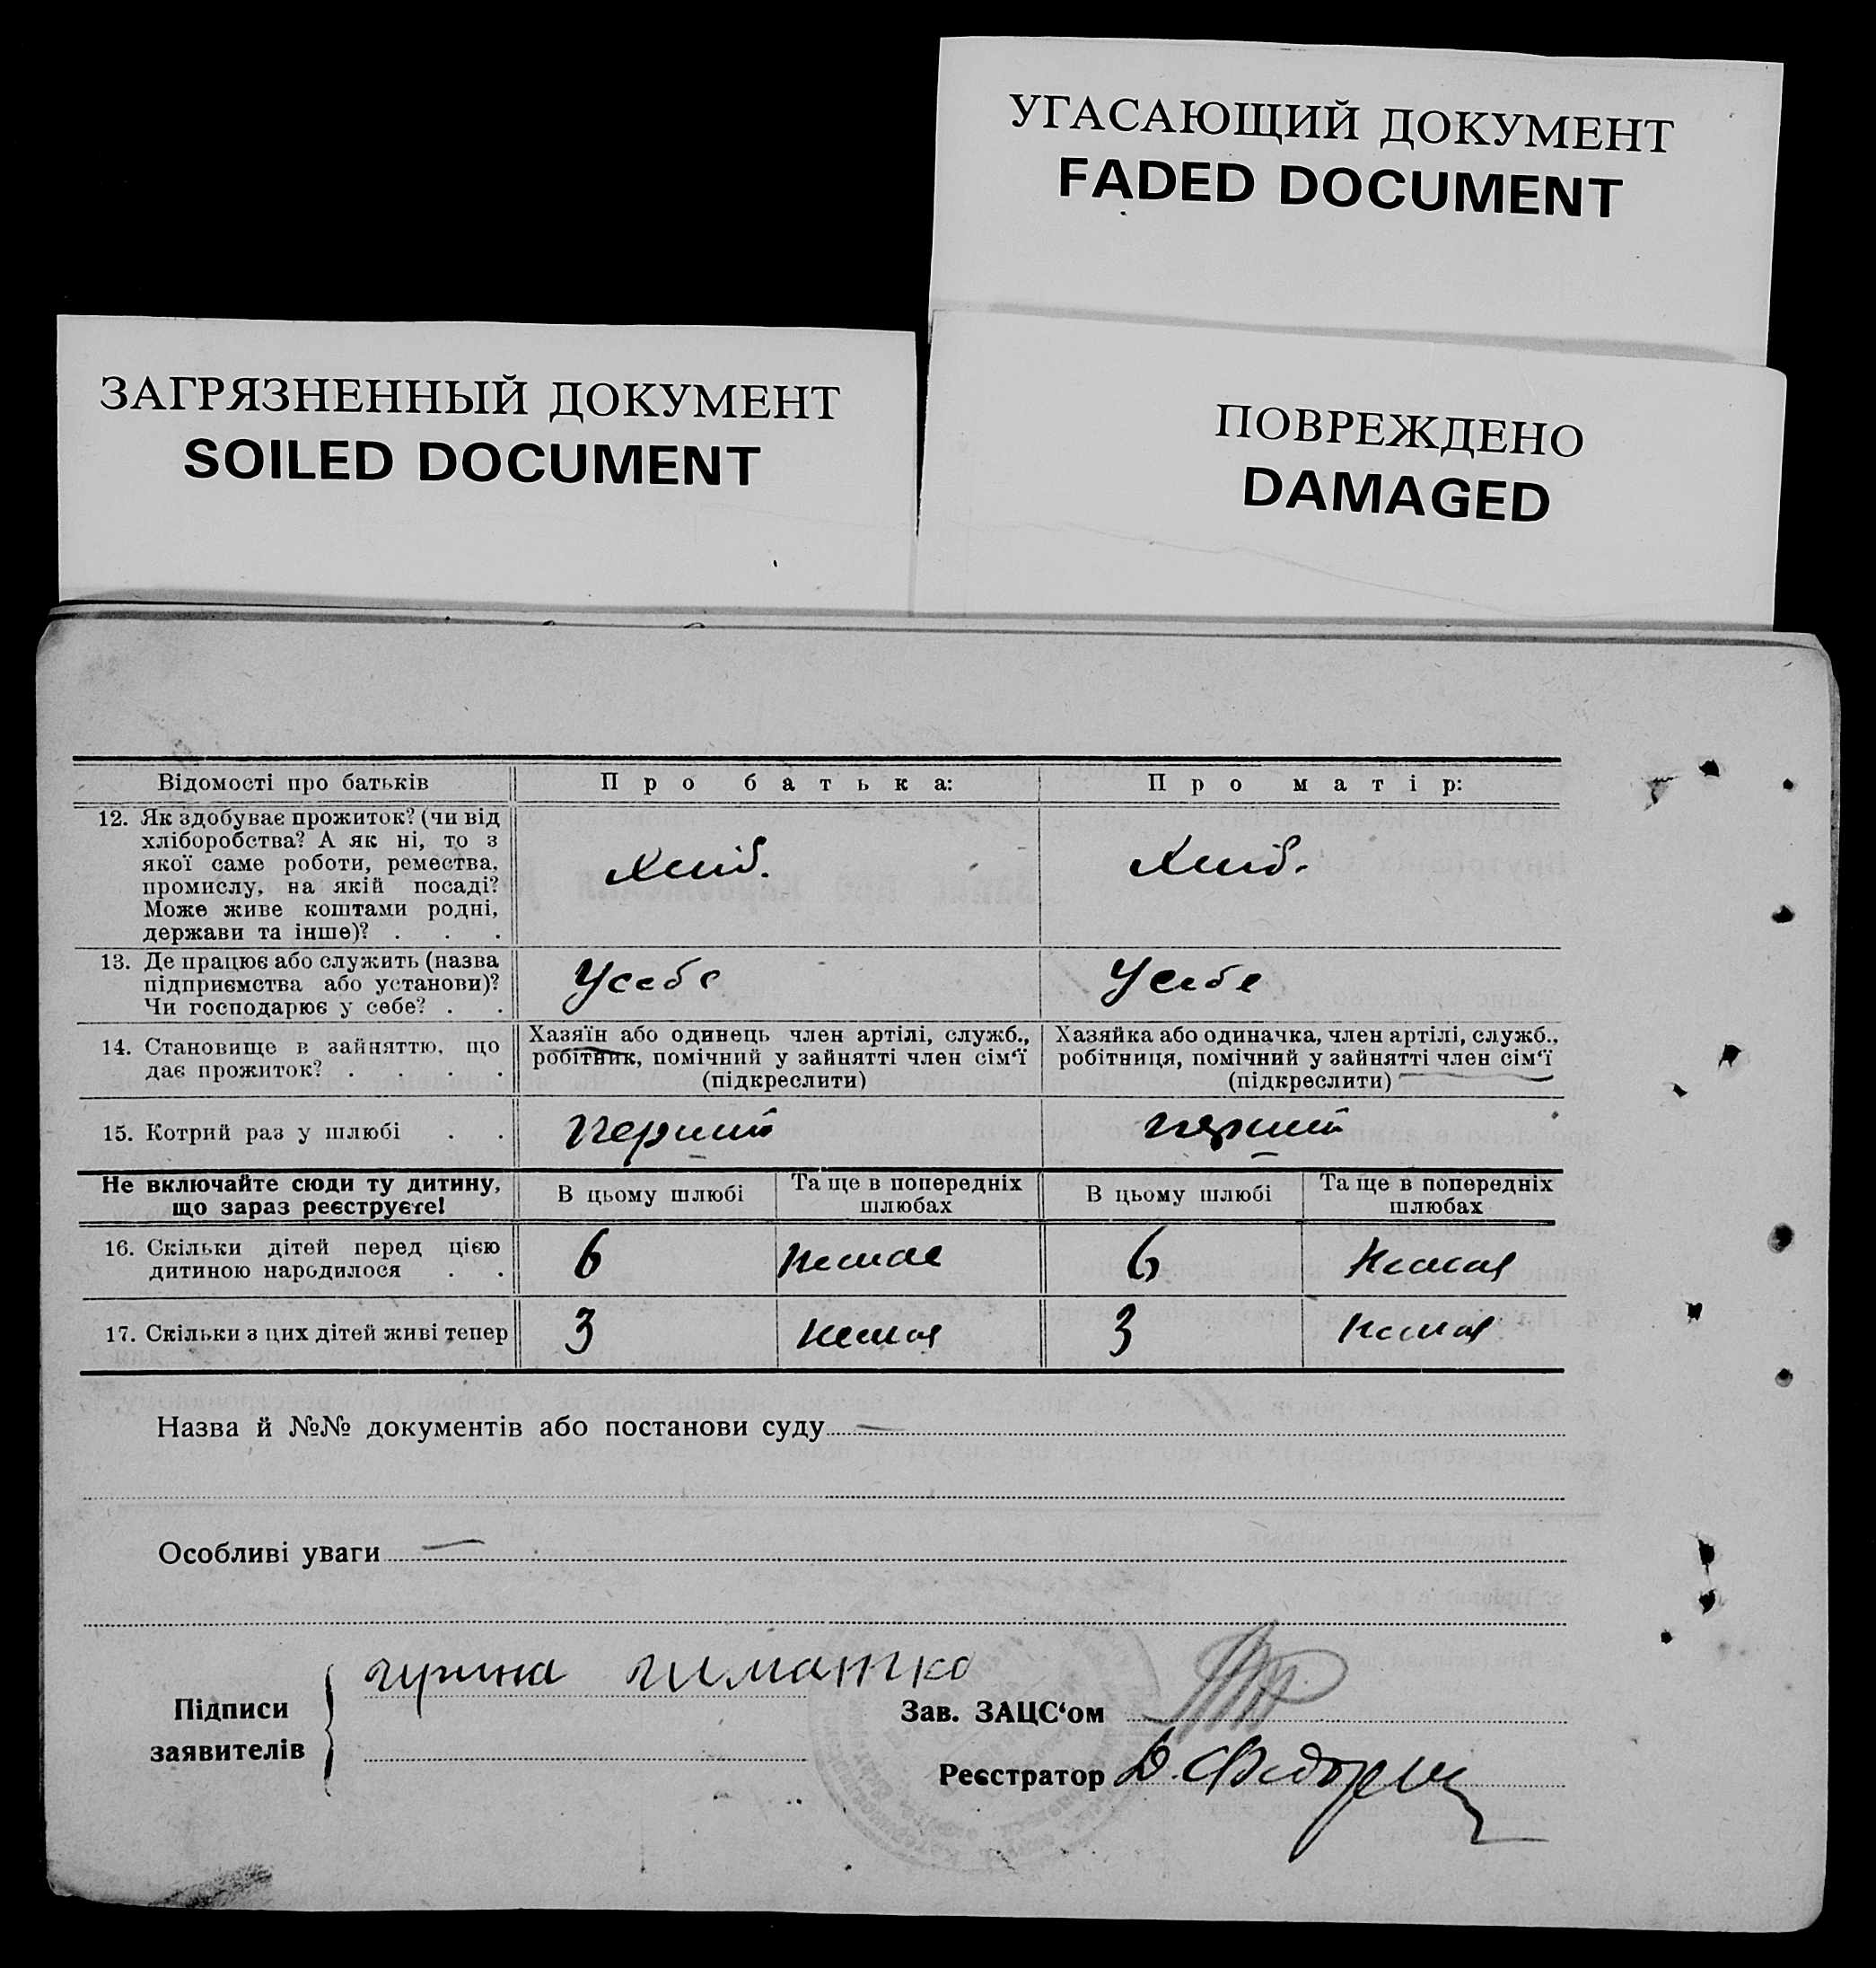 УГАСАЮЩИЙ ДОКУМЕНТ
FADED DOCUMENT
ЗАГРЯЗНЕННЫЙ ДОКУМЕНТ
SOILED DOCUMENT
ПОВРЕЖДЕНО
DAMAGED
Відомості про батьків Про батька: Про матір:
12. Як здобуває прожиток? (чи від
хліборобства? А як ні, то з
якої саме роботи, ремества,
промислу, на якій посаді?
Може живе коштами родні,
держави та інше)? . . .
Хліб. Хліб.
13. Де працює або служить (назва
підприємства або установи)?
Чи господарює у себе? . .
Усебе Усебе
14. Становище в зайняттю, що
дає прожиток? . . . .
Хазяїн або одинець член артілі, служб.,
робітник, помічний у зайнятті член сім'ї
(підкреслити)
Хазяйка або одиначка, член артілі, служб.,
робітниця, помічний у зайнятті член сім'ї
(підкреслити)
15. Котрий раз у шлюбі . . перший перший
Не включайте сюди ту дитину,
що зараз реєструєте!
В цьому шлюбі Та ще в попередніх
шлюбах
В цьому шлюбі Та ще в попередніх
шлюбах
16. Скільки дітей перед цією
дитиною народилося . .
6 Немае 6 Немая
17. Скільки з цих дітей живі тепер 3 немая 3 немая
Назва й №№ документів або постанови суду —
Особливі уваги —
Підписи
заявителів
Зав. ЗАЦС'ом
Реєстратор Д.